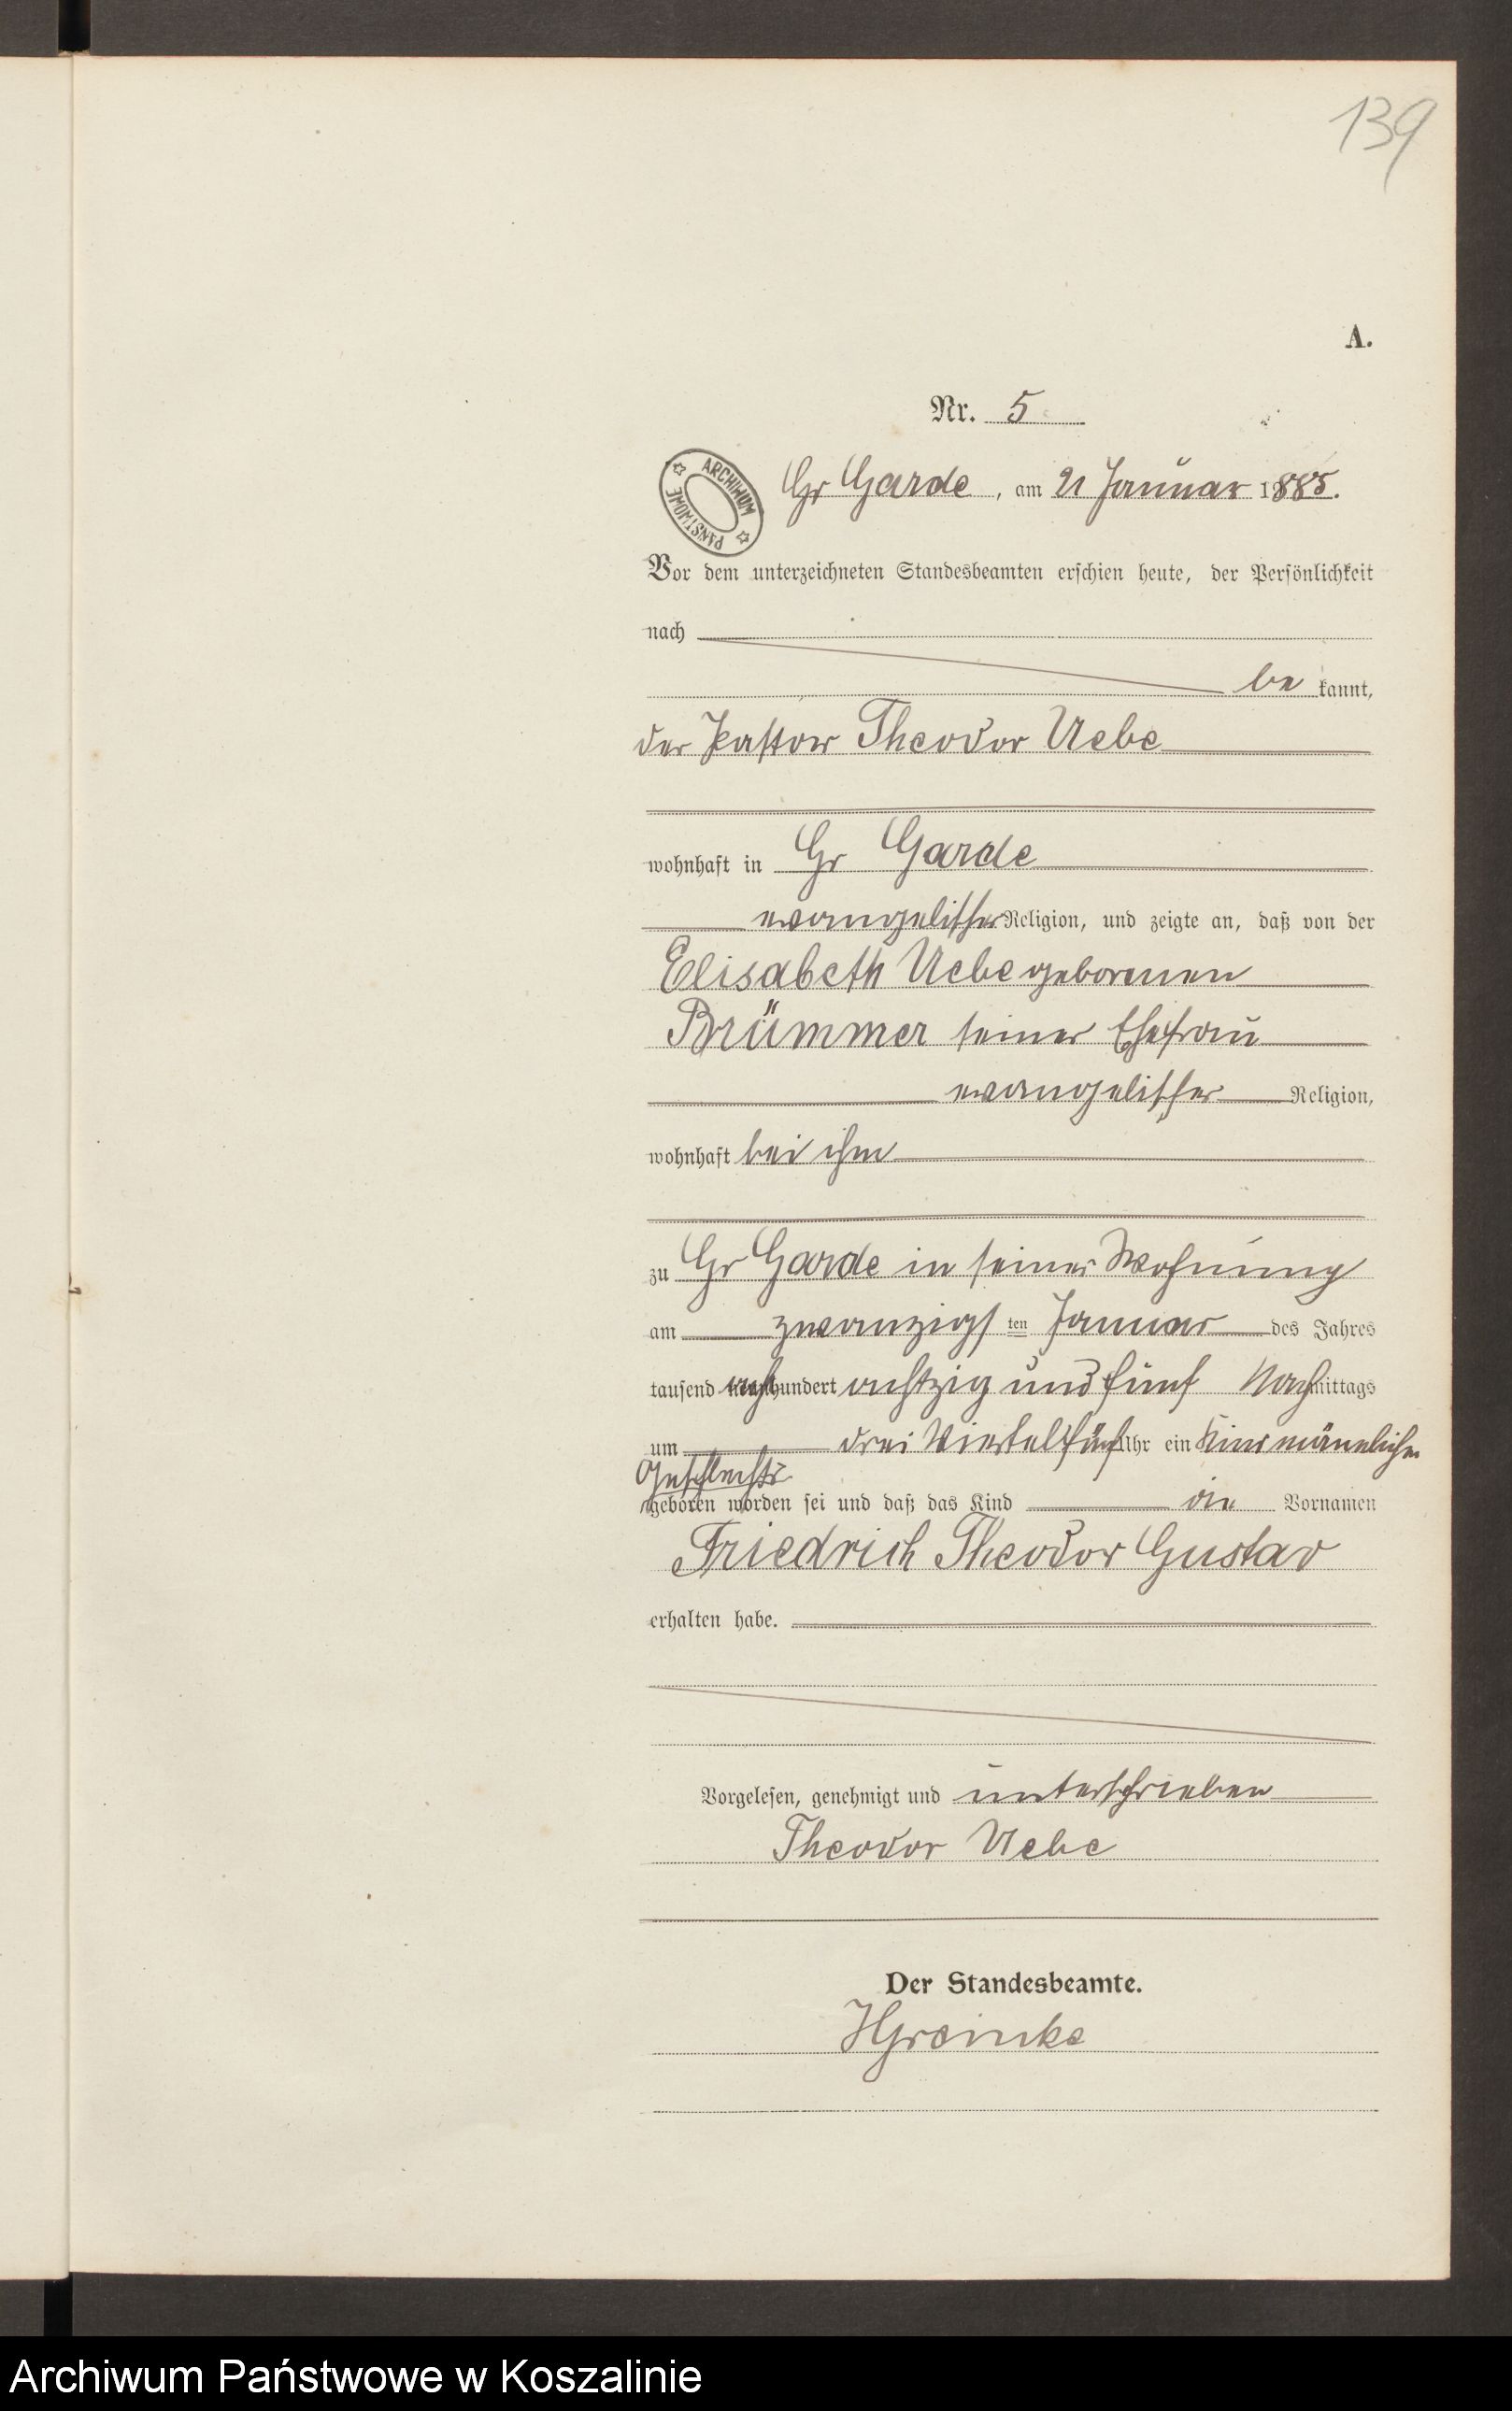 139
A.
Nr. 5
ARCHIWUM PAŃSTWOWE
Gr Garde, am 21 Januar 1885.
Vor dem unterzeichneten Standesbeamten erschien heute, der Persönlichkeit
nach
be kannt,
der Pastor Theodor Uebe
wohnhaft in Gr Garde
evangelischer Religion, und zeigte an, daß von der
Elisabeth Uebe geborenen
Brümmer seiner Ehefrau
evangelischer Religion,
wohnhaft bei ihm
zu Gr Garde in seiner Wohnung
am zwanzigsten Januar des Jahres
tausend acht hundert achtzig und fünf Nachmittags
um drei Viertel fünf Uhr ein Kind männlichen
Geschlechts
geboren worden sei und daß das Kind die Vornamen
Friedrich Theodor Gustav
erhalten habe.
Vorgelesen, genehmigt und unterschrieben
Theodor Uebe
Der Standesbeamte.
Archiwum Państwowe w Koszalinie